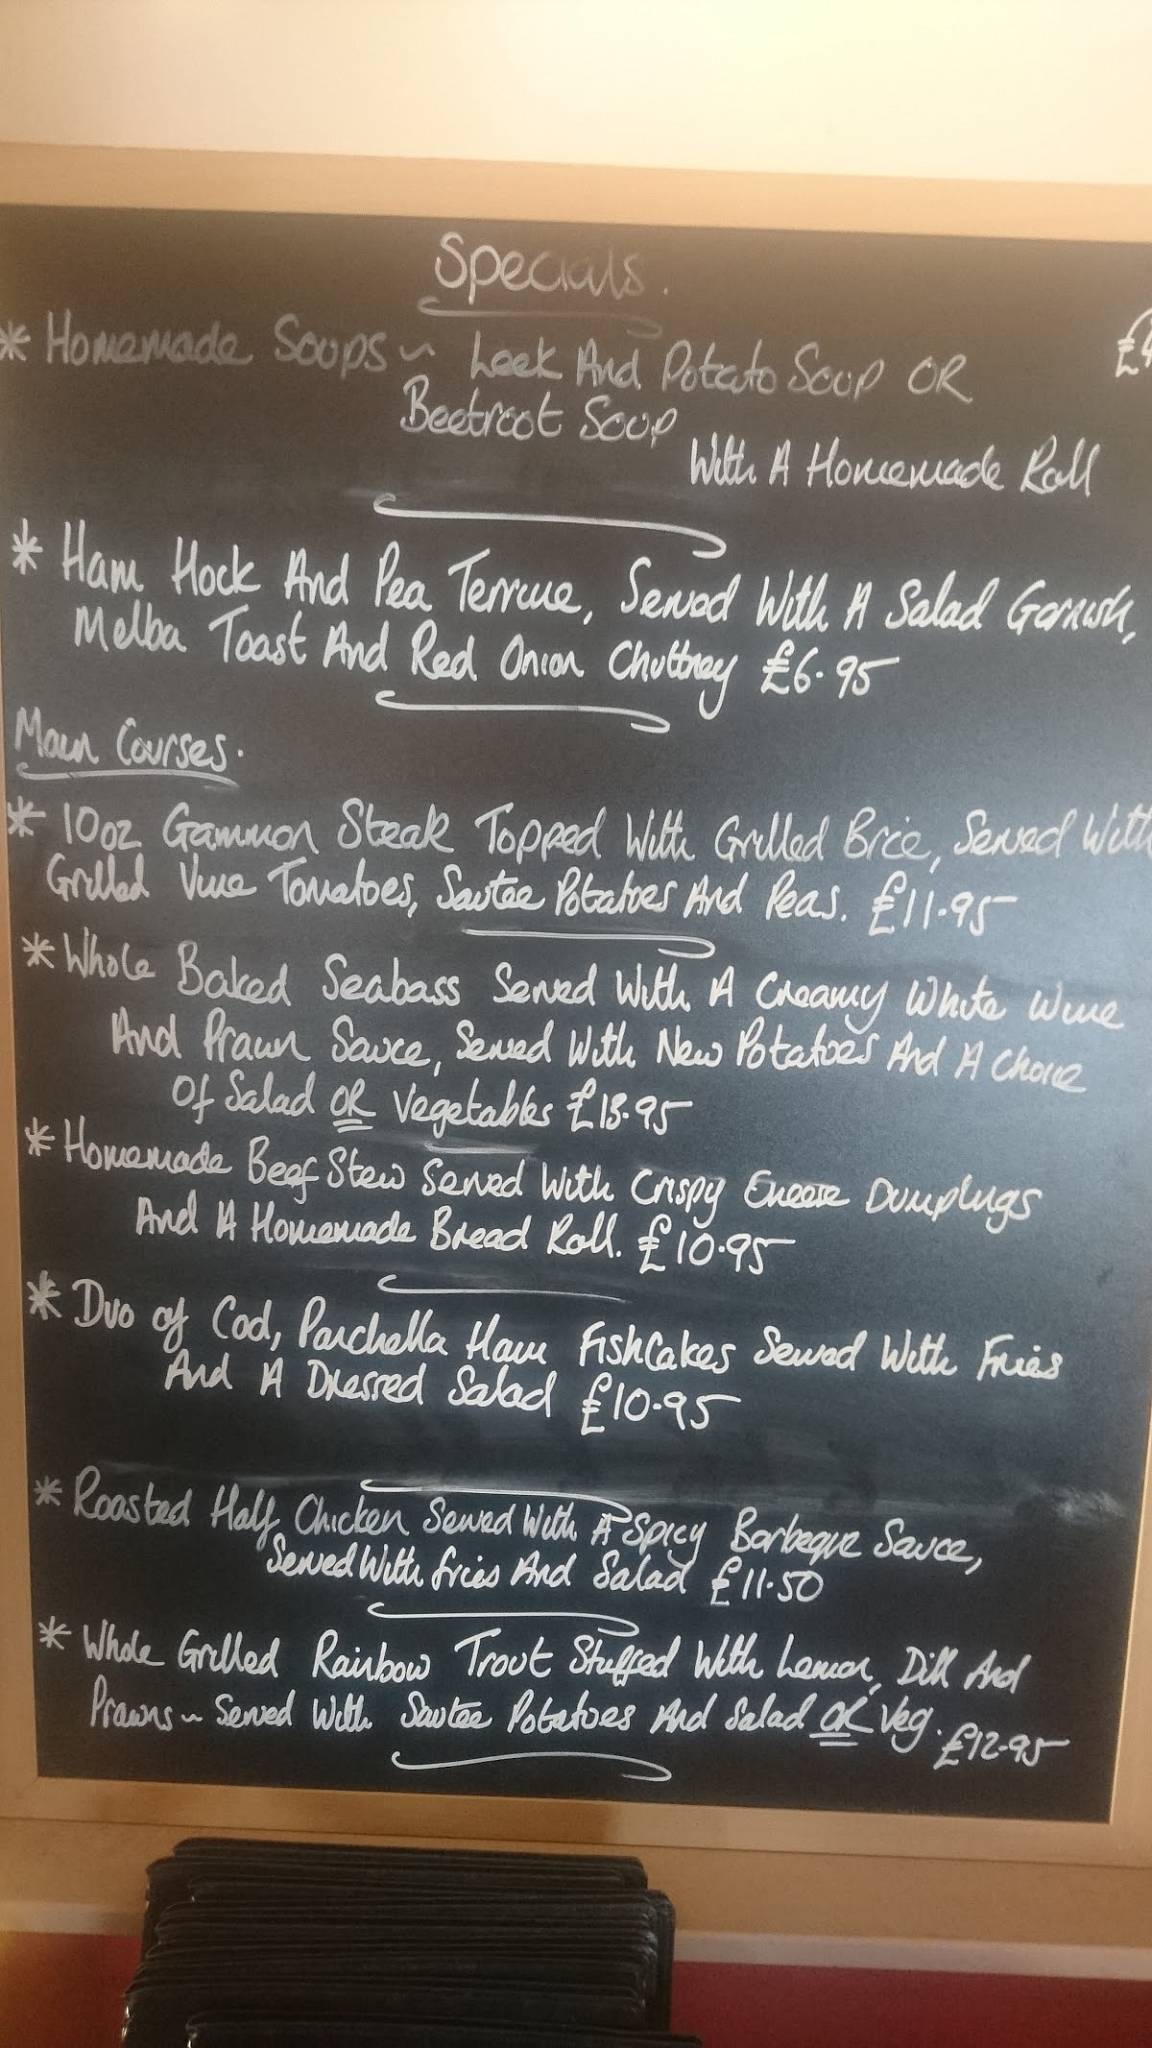 Specials.
* Homemade Soups ~ Leek And Potato Soup OR £4
Beetroot Soup
With A Homemade Roll
* Ham Hock And Pea Terrine, Served With A Salad Garnish,
Melba Toast And Red Onion Chuttney £6.95
Main Courses.
* 10oz Gammon Steak Topped With Grilled Brie, Served With
Grilled Vine Tomatoes, Sautee Potatoes And Peas. £11.95
* Whole Baked Seabass Served With A Creamy White Wine
And Prawn Sauce, Served With New Potatoes And A Choice
Of Salad OR Vegetables £13.95
* Homemade Beef Stew Served With Crispy Cheese Dumplings
And A Homemade Bread Roll. £10.95
* Duo of Cod, Panchetta Ham Fishcakes Served With Fries
And A Dressed Salad £10.95
* Roasted Half Chicken Served With A Spicy Barbeque Sauce,
Served With fries And Salad £11.50
* Whole Grilled Rainbow Trout Stuffed With Lemon, Dill And
Prawns ~ Served With Sautee Potatoes And Salad OR Veg. £12.95